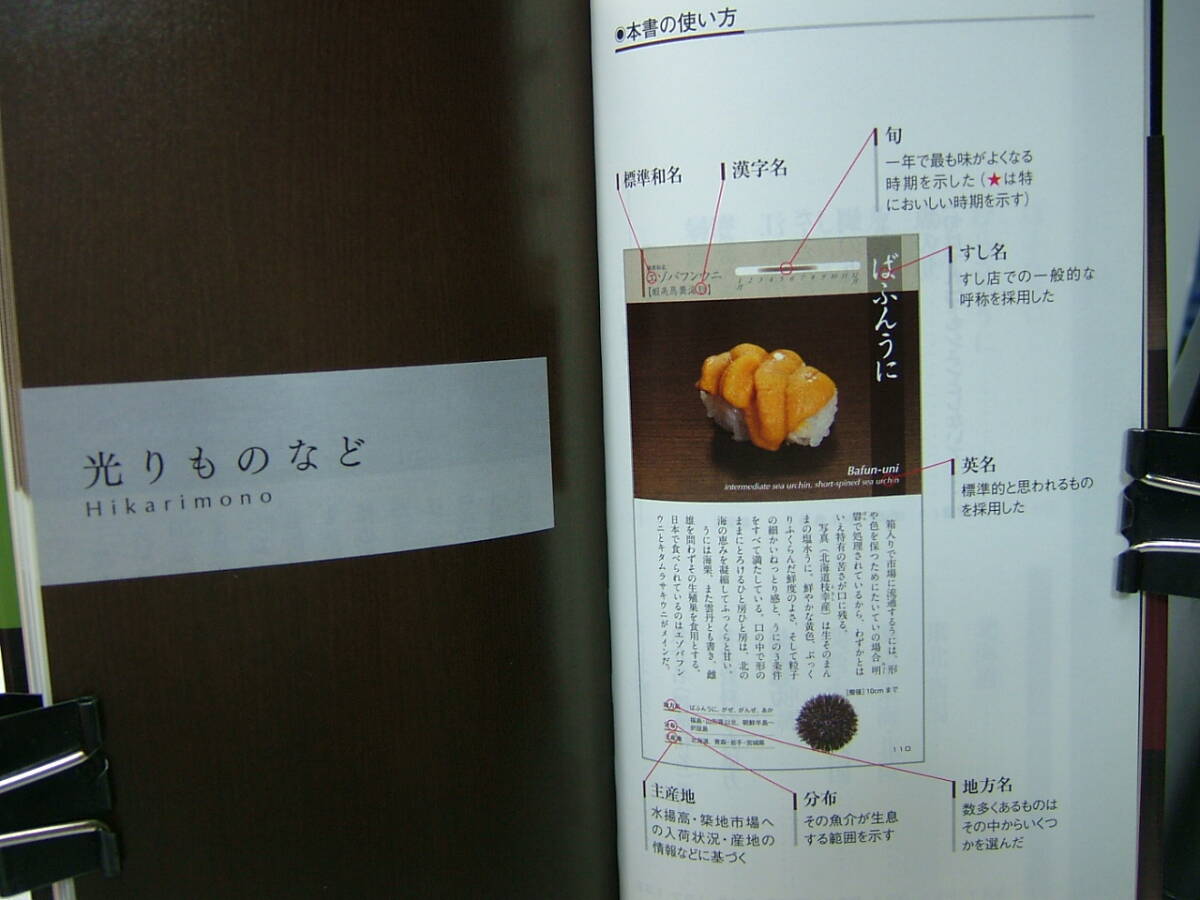 光りものなど
Hikarimono
◉本書の使い方
標準和名
漢字名
旬
一年で最も味がよくなる
時期を示した(★は特
においしい時期を示す)
すし名
すし店での一般的な
呼称を採用した
英名
標準的と思われるもの
を採用した
エゾバフンウニ
1月 2 3 4 5 6 7 8 9 10 11 12月
ばふんうに
Bafun-uni
intermediate sea urchin, short-spined sea urchin
箱入りで市場に流通するうには、形
や色を保つためにたいていの場合明
礬で処理されているから、わずかとは
いえ特有の苦さが口に残る。
写真(北海道枝幸産)は生そのまん
まの塩水うに。鮮やかな黄色、ぷっく
りふくらんだ鮮度のよさ、そして粒子
の細かいねっとり感と、うにの3条件
をすべて満たしている。口の中で形の
ままにとろけるひと房ひと房は、北の
海の恵みを凝縮してふっくらと甘い。
うには海栗、また雲丹とも書き、雌
雄を問わずその生殖巣を食用とする。
日本で食べられているのはエゾバフン
ウニとキタムラサキウニがメインだ。
[殻径]10cmまで
ばふんうに、がぜ、がんぜ、あか
福島・山形県以北、朝鮮半島〜
北海道、青森・岩手・宮城県
110
主産地
水揚高・築地市場へ
の入荷状況・産地の
情報などに基づく
分布
その魚介が生息
する範囲を示す
地方名
数多くあるものは
その中からいくつ
かを選んだ